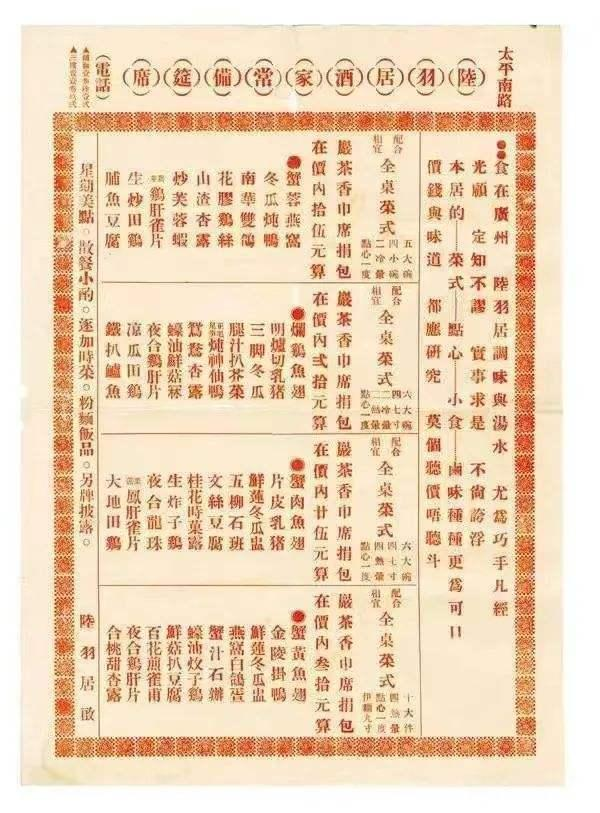 太平南路
陸羽居酒家常備筵席
(電話)
食在廣州 陸羽居調味與湯水 尤爲巧手凡經
光顧 定知不謬 實事求是 不尙誇浮
本居的——菜式——點心——小食——鹵味種種更爲可口
價錢與味道 都應研究 莫個聽價唔聽斗
配合
相宜
全桌菜式
五大碗
四小碗
二冷葷
點心一度
巖茶香巾席捐包
在價內拾伍元算
蟹蓉燕窩
冬瓜炖鴨
南華雙鴿
花膠鷄絲
山渣杏露
炒芙蓉蝦
鷄肝雀片
生炒田鷄
脯魚豆腐
配合
相宜
全桌菜式
六大碗
四七寸
二冷葷
二熱葷
點心一度
巖茶香巾席捐包
在價內弍拾元算
爛鷄魚翅
明爐切乳猪
三脚冬瓜
腿汁扒芥菜
炖神仙鴨
鴛鴦杏露
蠔油鮮菇秣
夜合鷄肝片
凉瓜田鷄
鐵扒鱸魚
配合
相宜
全桌菜式
六大碗
四七寸
四熱葷
點心一度
巖茶香巾席捐包
在價內廿伍元算
蟹肉魚翅
片皮乳猪
鮮蓮冬瓜盅
五柳石班
文絲豆腐
桂花時菓露
生炸子鷄
夜合龍珠
鳳肝雀片
大地田鷄
配合
相宜
全桌菜式
十大件
四熱葷
點心一度
伊麵九寸
巖茶香巾席捐包
在價內叁拾元算
蟹黃魚翅
金陵掛鴨
鮮蓮冬瓜盅
燕窩白鴿蛋
蟹汁石辦
蠔油炆子鷄
鮮菇扒豆腐
百花煎雀甫
夜合鷄肝片
合桃甜杏露
星期美點。散餐小酌。逐加時菜。粉麵飯品。另牌披露。
陸羽居啟